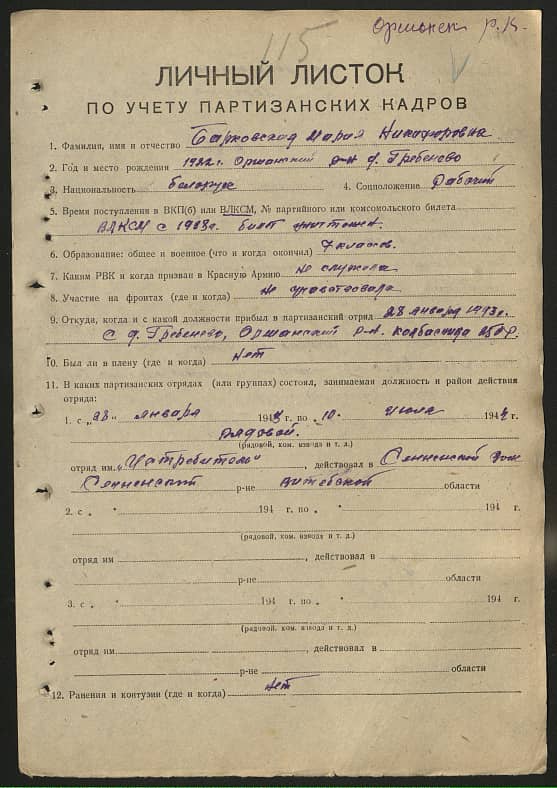 Оршанск р. К.
115
ЛИЧНЫЙ ЛИСТОК
ПО УЧЕТУ ПАРТИЗАНСКИХ КАДРОВ
1. Фамилия, имя и отчество Барковская Мария Никифоровна
2. Год и место рождения 1922 г. Оршанский р-н д. Гребенево
3. Национальность белорус 4. Соцположение Рабочий
5. Время поступления в ВКП(б) или ВЛКСМ, № партийного или комсомольского билета
ВЛКСМ с 1943 г. билет уничтожен.
6. Образование: общее и военное (что и когда окончил) 7 классов.
7. Каким РВК и когда призван в Красную Армию не служила
8. Участие на фронтах (где и когда) не участвовала
9. Откуда, когда и с какой должности прибыл в партизанский отряд 28 января 1943 г.
с д. Гребенево, Оршанский р-н.
10. Был ли в плену (где и когда) Нет
11. В каких партизанских отрядах (или группах) состоял, занимаемая должность и район действия
отряда:
1. с „28“ января 1943 г. по „10“ июля 1944 г.
Рядовой.
(рядовой, ком. взвода и т. д.)
отряд им. „Истребитель“, действовал в Сенненский
Сенненский р-не Витебской области
2. с „ “ 194 г. по „ “ 194 г.
(рядовой, ком. взвода и т. д.)
отряд им , действовал в
р-не области
3. с „ “ 194 г. по „ “ 194 г.
(рядовой, ком. взвода и т. д.)
отряд им. , действовал в
р-не области
12. Ранения и контузии (где и когда) Нет